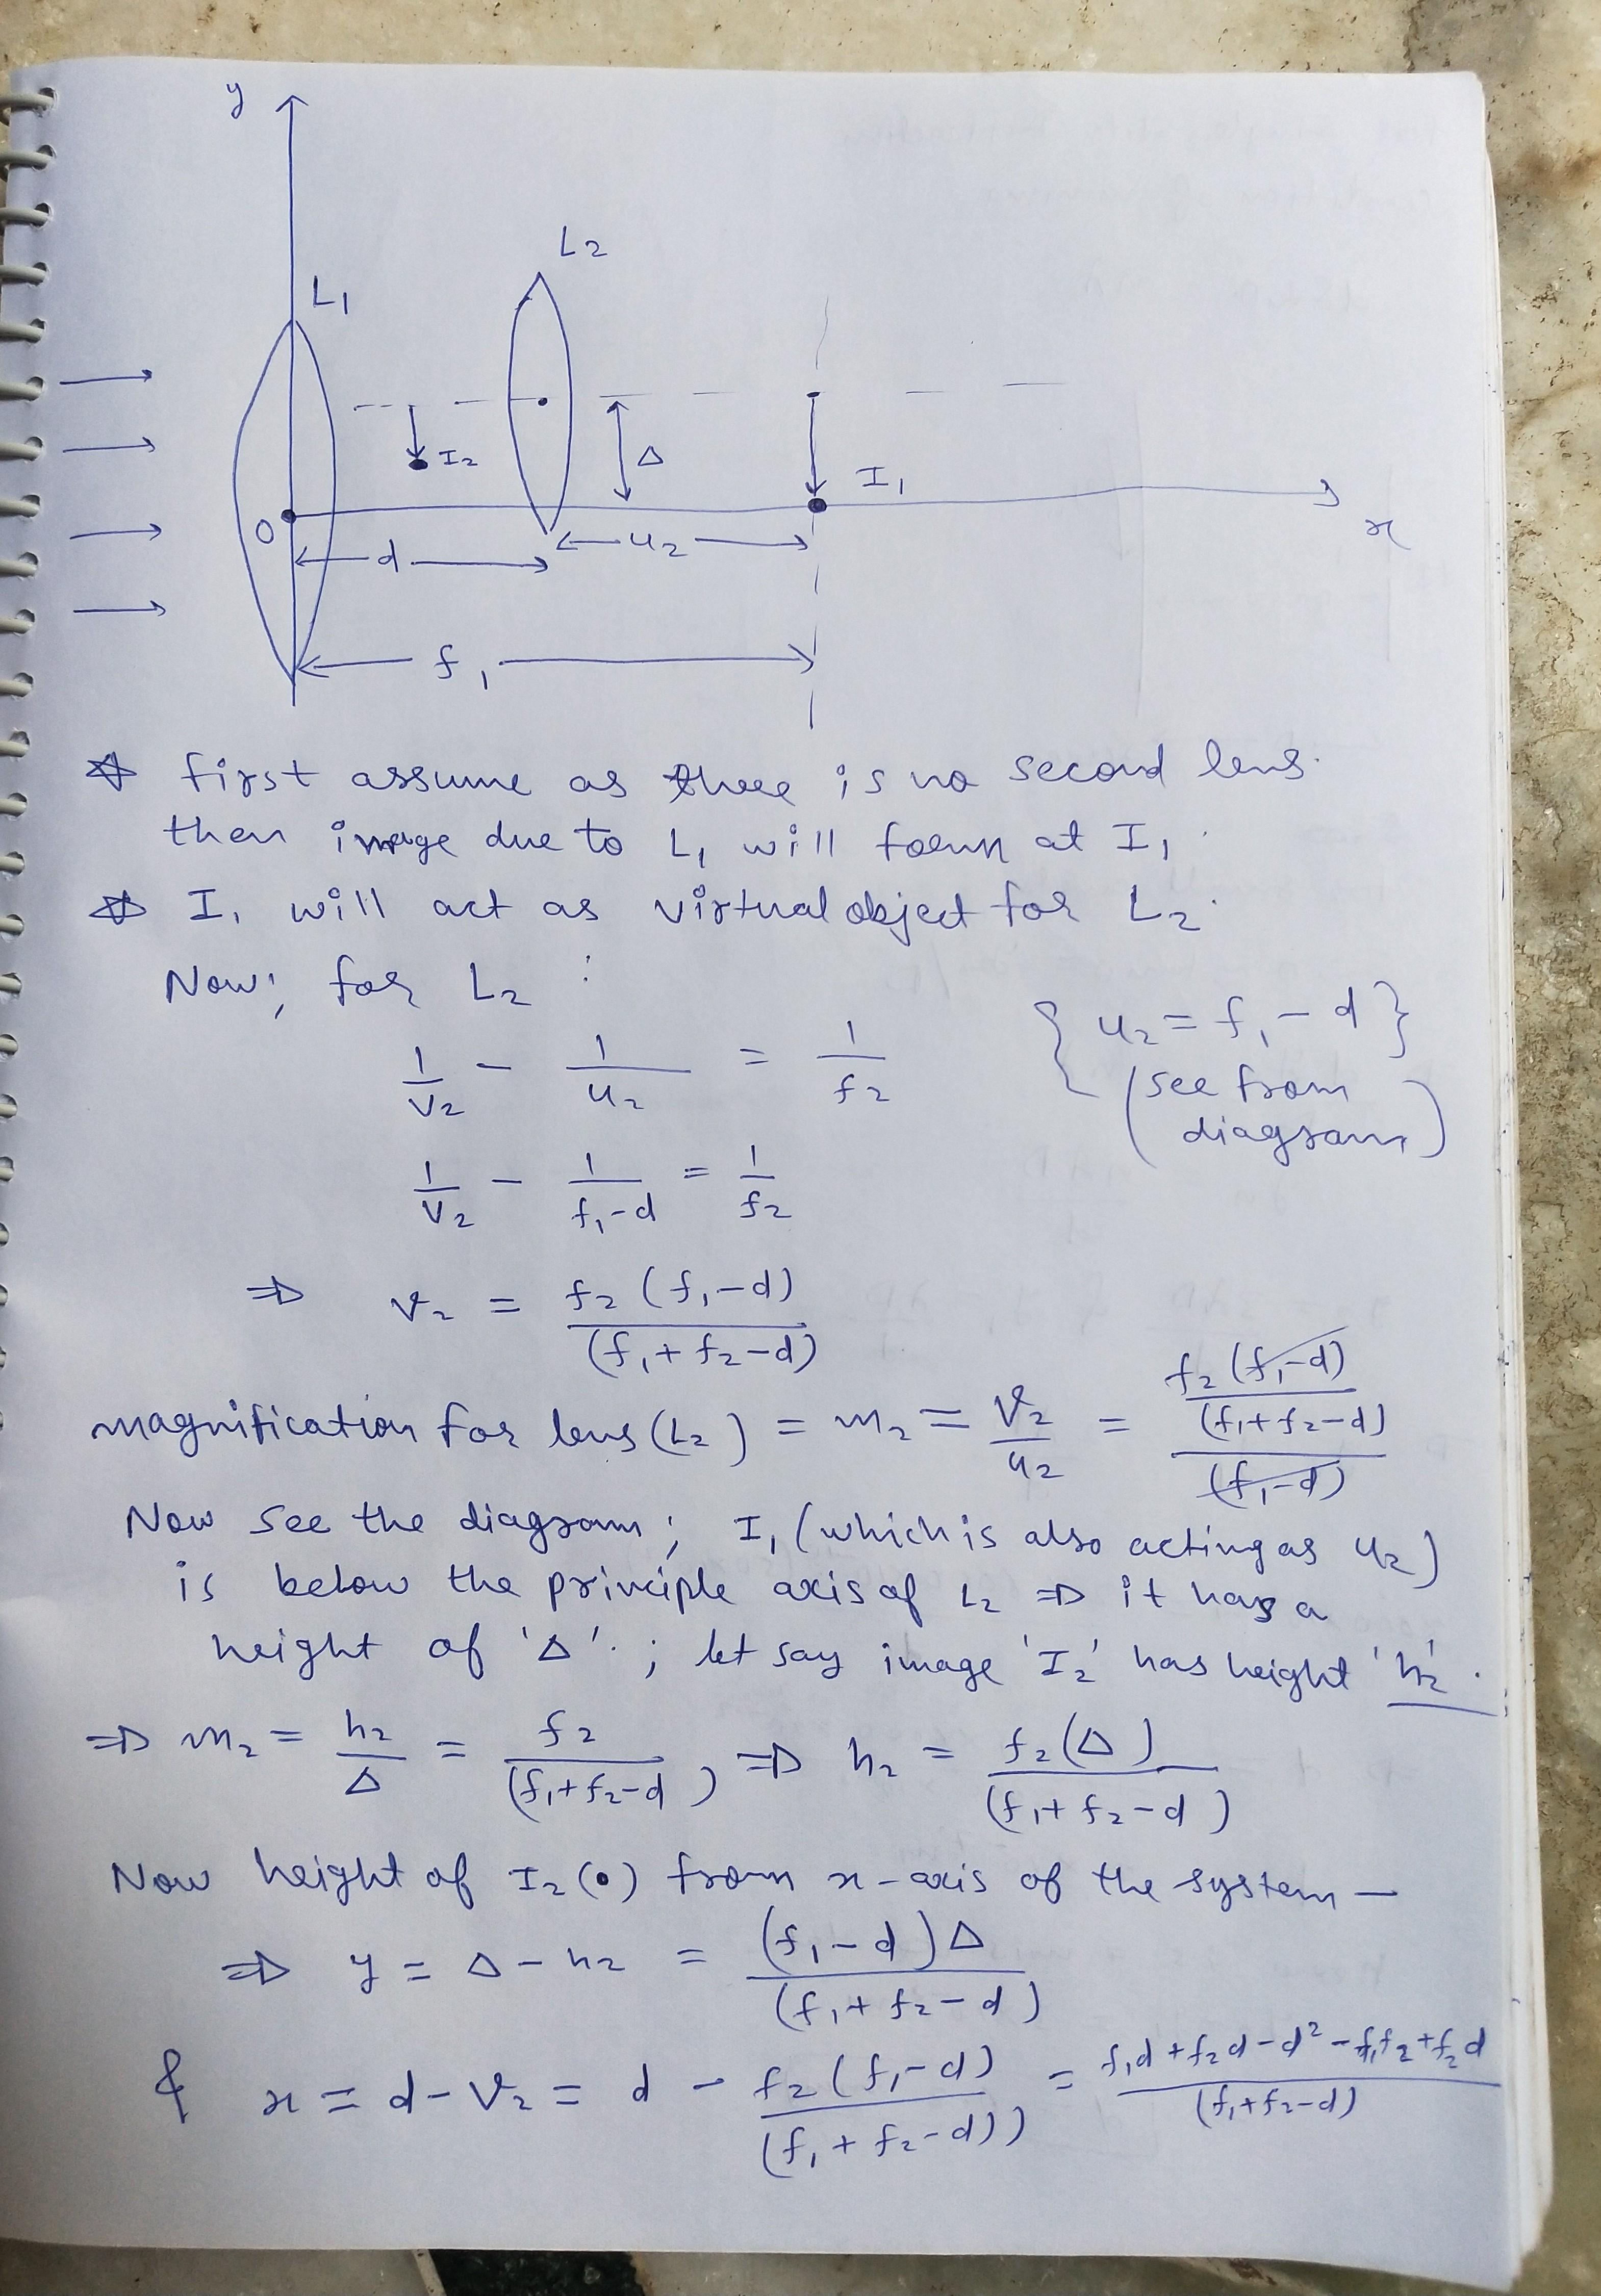 y
L2
L1
I2
Δ
I1
O
x
d
u2
f1
☆ first assume as there is no second lens.
then image due to L1 will form at I1
☆ I1 will act as virtual object for L2.
Now; for L2 :
1/v2 - 1/u2 = 1/f2 { u2 = f1 - d }
(see from diagram)
1/v2 - 1/(f1-d) = 1/f2
⇒ v2 = f2 (f1-d) / (f1+f2-d)
magnification for lens (L2) = m2 = v2/u2 = (f2 (f1-d) / (f1+f2-d)) / (f1-d)
Now see the diagram; I1 (which is also acting as u2)
is below the principle axis of L2 ⇒ it has a
height of 'Δ'. ; let say image 'I2' has height 'h2'.
⇒ m2 = h2/Δ = f2/(f1+f2-d) , ⇒ h2 = f2(Δ)/(f1+f2-d)
Now height of I2 (•) from x-axis of the system —
⇒ y = Δ - h2 = (f1-d)Δ / (f1+f2-d)
& x = d - v2 = d - f2(f1-d)/(f1+f2-d)) = f1d+f2d-d²-f1f2+f2d / (f1+f2-d)